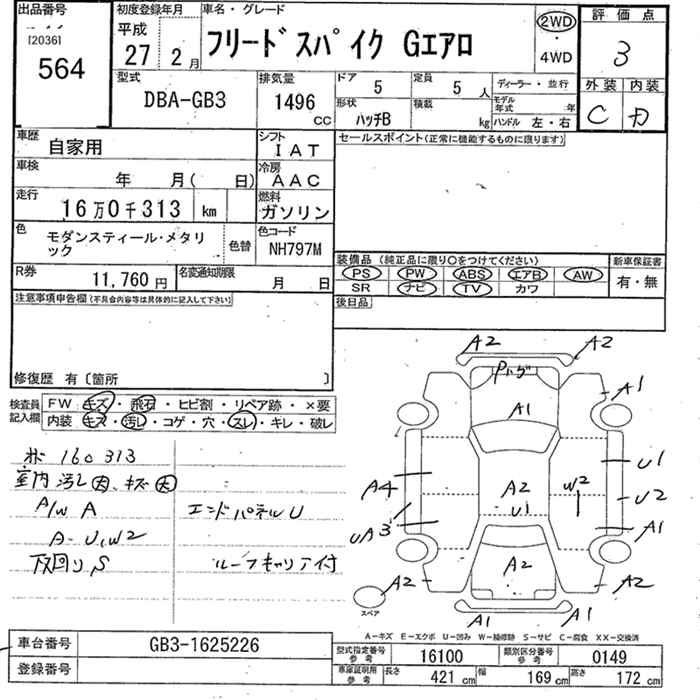 出品番号
120361
564
初度登録年月
平成
27 2月
車名・グレード
フリードスパイク Gエアロ
2WD
4WD
評価点
3
外装 内装
C D
型式
DBA-GB3
排気量
1496
CC
ドア
5
定員
5 人
形状
ハッチB
積載
kg
ディーラー・並行
モデル年式 年
ハンドル 左・右
車歴
自家用
シフト
IAT
セールスポイント(正常に機能するものに限ります)
車検
年 月( 日)
冷房
AAC
走行
16万0千313 km
燃料
ガソリン
色
モダンスティール・メタリック
色替
色コード
NH797M
R券
11,760円
名変通知期限
月 日
装備品 (純正品に限り○をつけてください)
PS PW ABS エアB AW
SR ナビ TV カワ
新車保証書
有・無
後日品
注意事項申告欄(不具合内容等は具体的に記入して下さい)
修復歴 有〔箇所 〕
検査員記入欄
FW キズ・飛石・ヒビ割・リペア跡・×要
内装 キズ・汚し・コゲ・穴・スレ・キレ・破レ
ホ 160313
室内汚レ大、キズ大
A/W A
A-U,W2
下回りS
エンドパネルU
ルーフキャリア付
A2
A2
Pハゲ
A1
A1
A4
UA3
A2
U1
W2
U1
U2
A1
A2
A2
A2
A1
A1
スペア
A-キズ E-エクボ U-凹み W-補修跡 S-サビ C-腐食 XX-交換済
車台番号
GB3-1625226
登録番号
型式指定番号参考
16100
類別区分番号参考
0149
車庫証明用参考
長さ
421 cm
幅
169 cm
高さ
172 cm